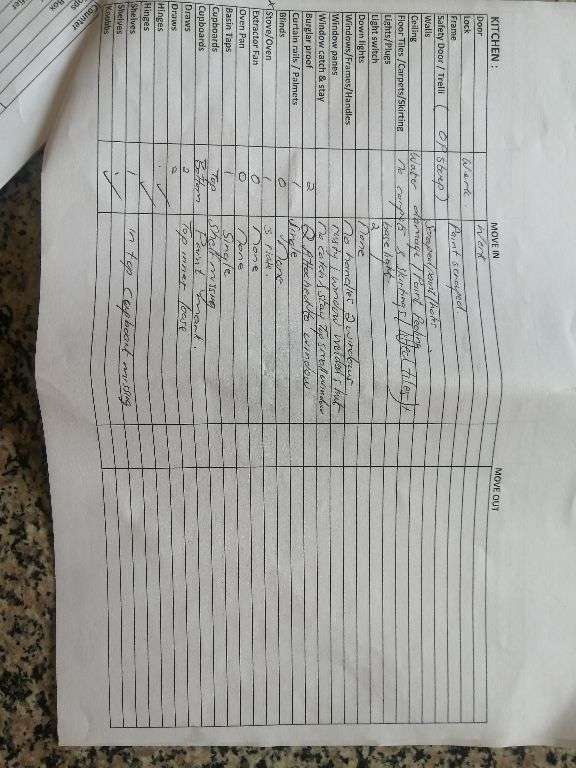 KITCHEN : MOVE IN MOVE OUT
Door work
Lock work
Frame Paint scraped
Safety Door / Trelli
Walls Scraped paint
Ceiling Water damage / Paint Peeling
Floor Tiles /Carpets/Skirting No carpets & skirtings / lifted tiles
Lights/Plugs
Light switch 2
Down lights None
Windows/Frames/Handles No handles 2 windows
Window panes rusty 1 window welded shut
Window catch & stay No catch & stay Top small window
Burglar proof 2 2 Attached to window
Curtain rails / Palmets 1 Single
Blinds 0 None
Stove/Oven 1
Extractor Fan 0 None
Oven Pan 0 None
Basin Taps 1 Single
Cupboards Top Shelf missing
Cupboards Bottom
Draws 2 Top inner loose
Draws 2
Hinges ✓
Hinges ✓
Shelves
Shelves 1 in top cupboard missing
Knobbs ✓
Counter